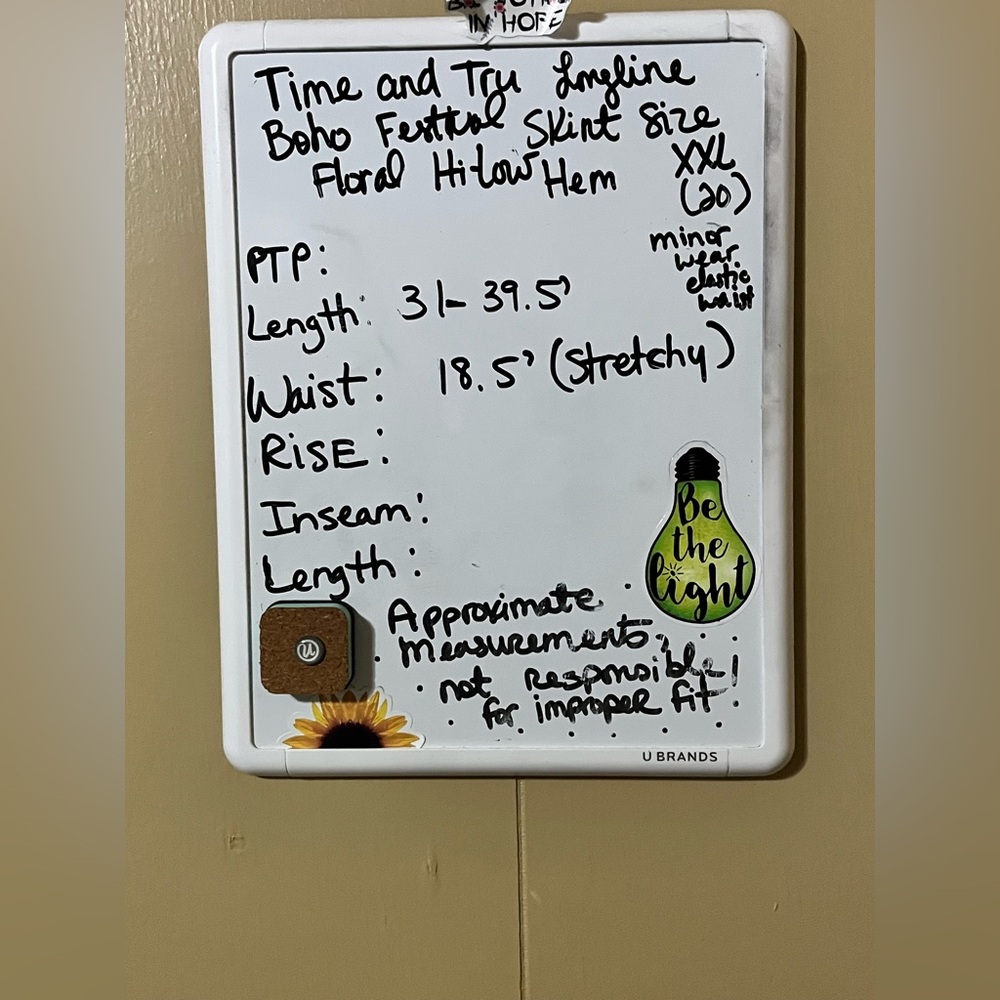 IN HOPE
Time and Tru Longline
Boho Festival Skirt Size
Floral Hi-Low Hem XXL
(20)
minor
wear
elastic
waist
PTP:
Length: 31-39.5'
Waist: 18.5' (stretchy)
RISE:
Inseam:
Length:
Be
the
light
Approximate
measurements,
not responsible
for improper fit
U
U BRANDS